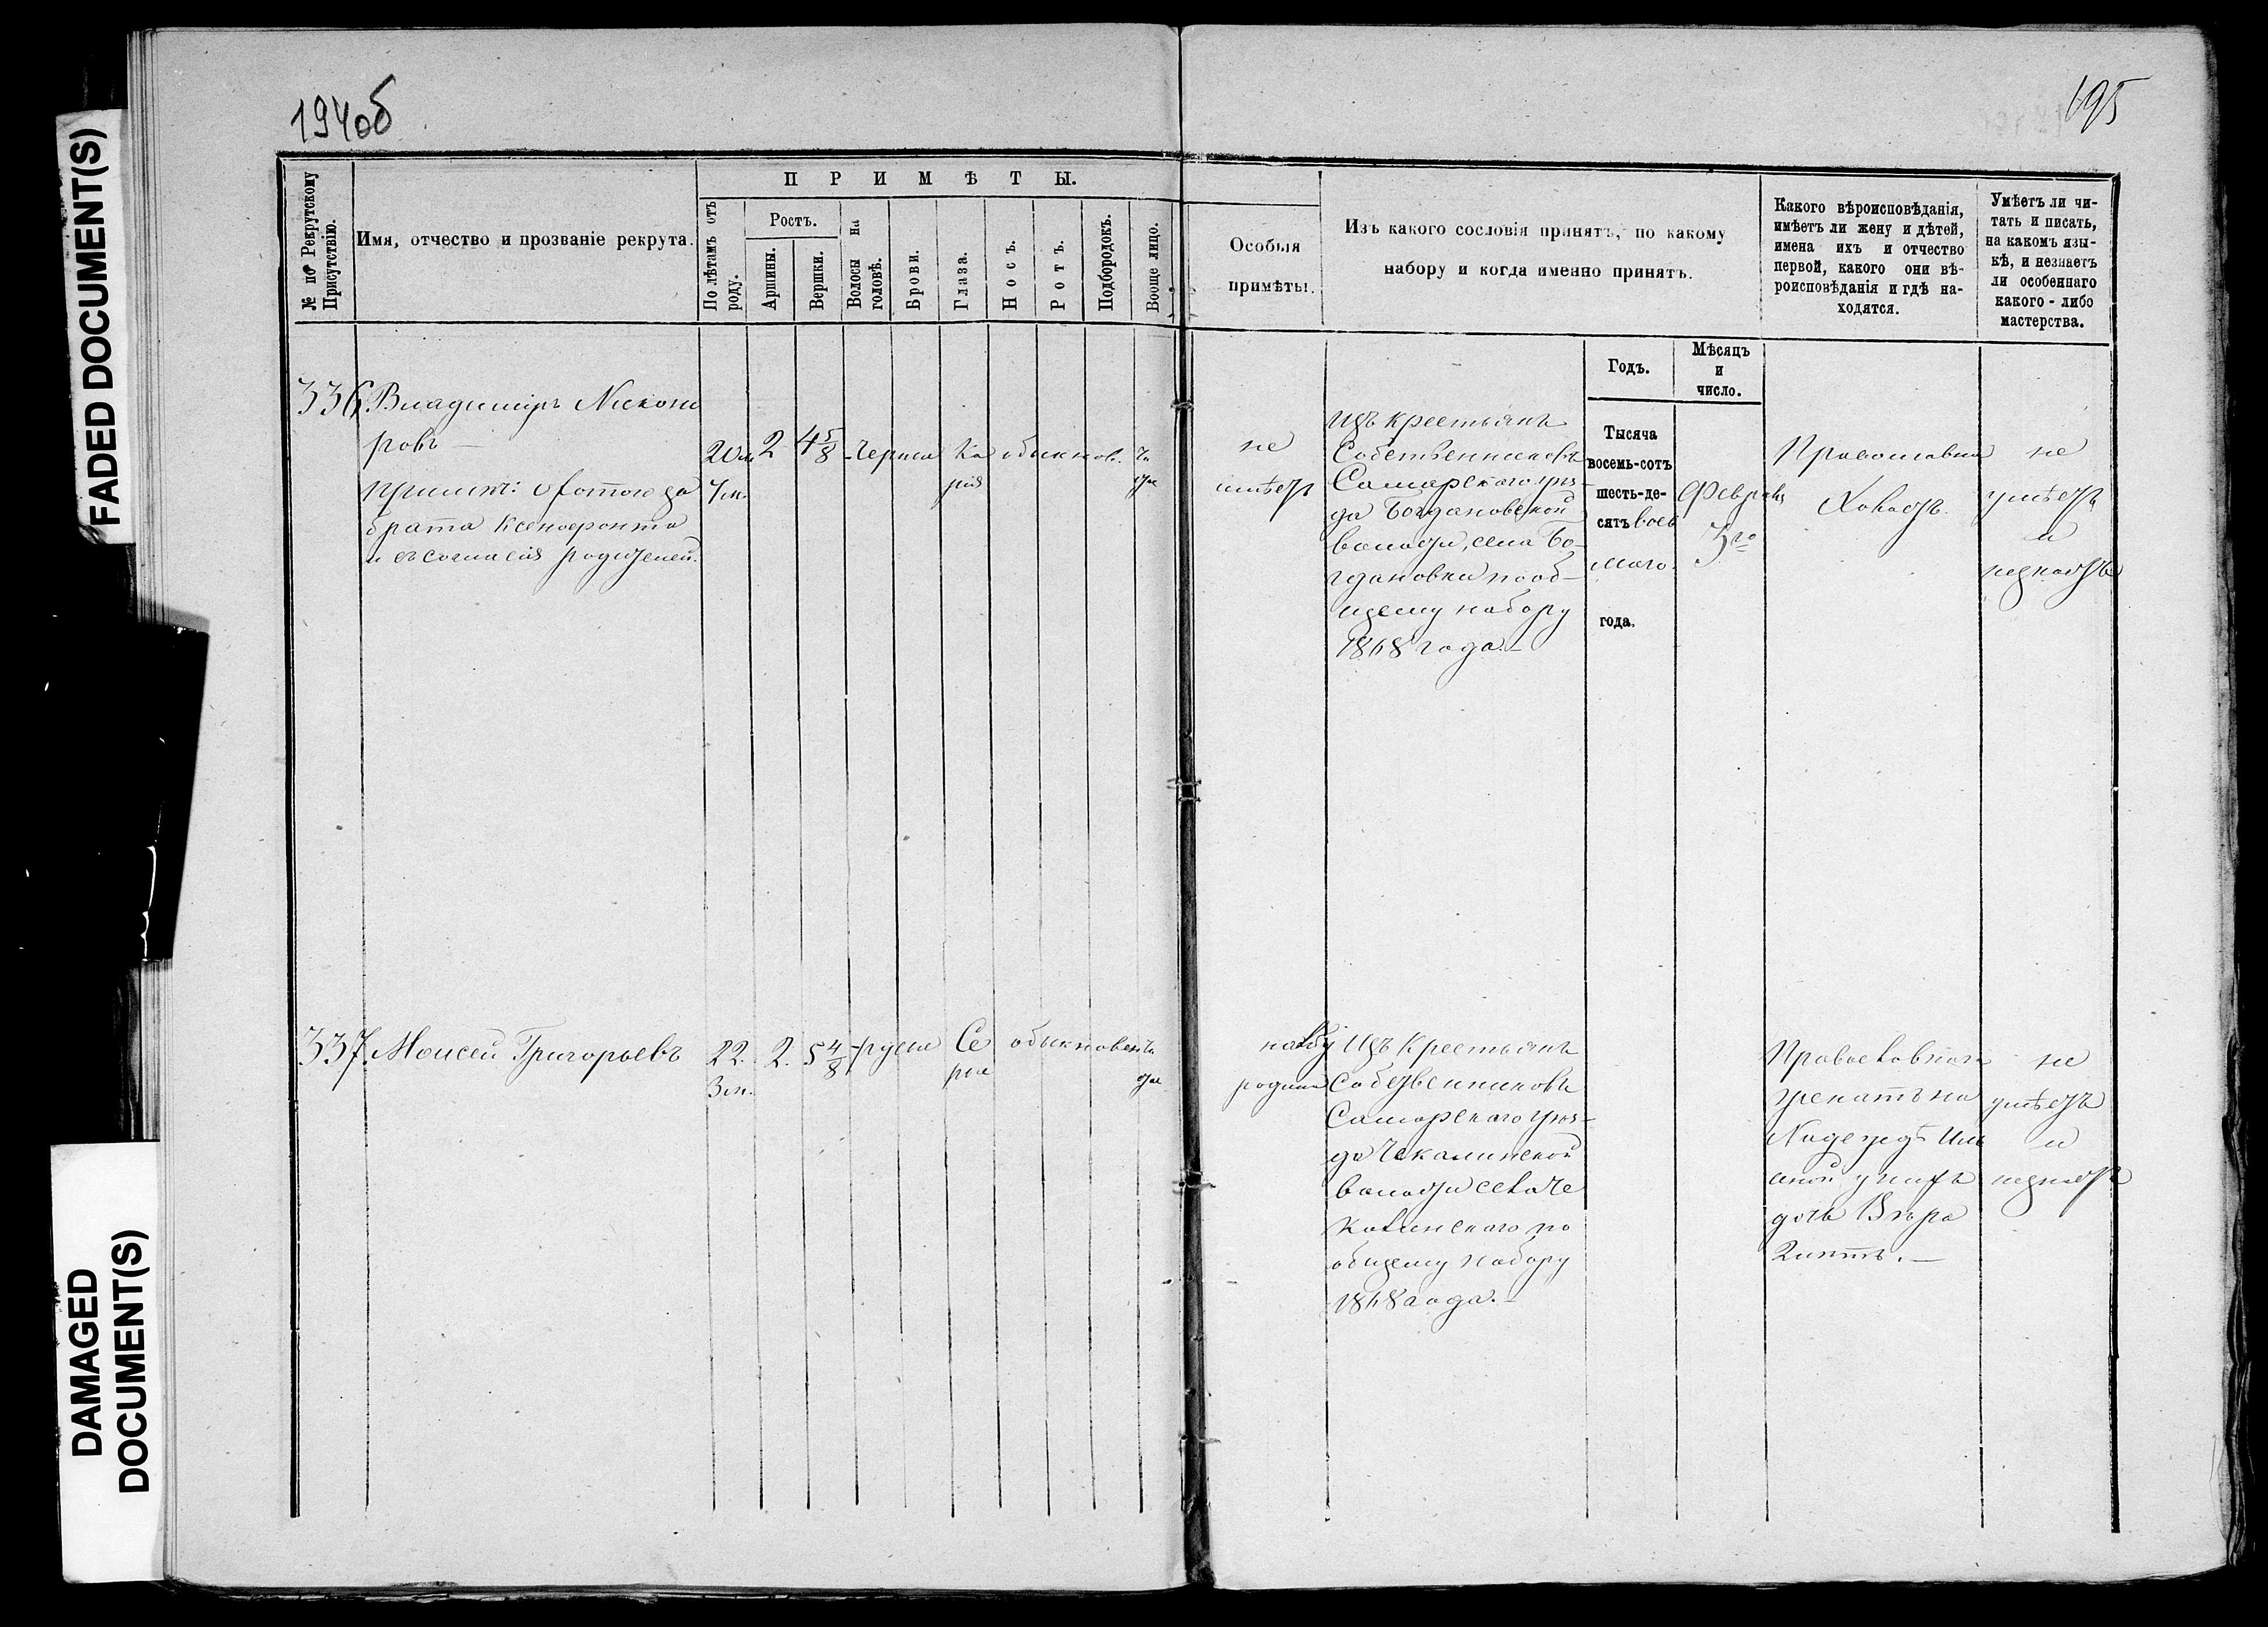 FADED DOCUMENT(S)
DAMAGED
DOCUMENT(S)
194об
195
№ по Рекрутскому
Присутствію.
Имя, отчество и прозваніе рекрута.
ПРИМѢТЫ.
По лѣтамъ отъ
роду.
Ростъ.
Аршины.
Вершки.
Волосы на
головѣ.
Брови.
Глаза.
Носъ.
Ротъ.
Подбородокъ.
Вооще лицо.
Особыя
примѣты.
Изъ какого сословія принятъ, по какому
набору и когда именно принятъ.
Какого вѣроисповѣданія,
имѣетъ ли жену и дѣтей,
имена ихъ и отчество
первой, какого они вѣ-
роисповѣданія и гдѣ на-
ходятся.
Умѣетъ ли чи-
тать и писать,
на какомъ язы-
кѣ, и незнаетъ
ли особеннаго
какого-либо
мастерства.
Годъ.
Мѣсяцъ
и
число.
336. Владиміръ Никоно
ровъ —
брата Ксенофонта
и съ согласія родителей.
20 2 4 5/8 черные Ка обыкнов. Чи
рія стое
не
имѣетъ
Изъ крестьянъ
Собственниковъ
Самарскаго уѣз-
да Богдановской
волости, села Бо-
гдановки по об-
щему набору
1868 года. —
Тысяча
восемь-сотъ
шесть-де-
сятъ вось
маго
года.
Февраля
3го
Православна
Холостъ.
не
умѣетъ
и
незнаетъ
337. Моисей Григорьевъ
22. 2. 5 4/8 русые Се обыкновен. Чи
3 м. рые стое
на лбу
родина
Изъ Крестьянъ
Собственниковъ
Самарскаго уѣз-
да Чекалинской
волости села Че
калинскаго по
общему набору
1868 года. —
Православнаго
женатъ на
Надеждѣ Иль
иной у нихъ
дочь Вѣра
2 лѣтъ. —
не
умѣетъ
и
незнаетъ